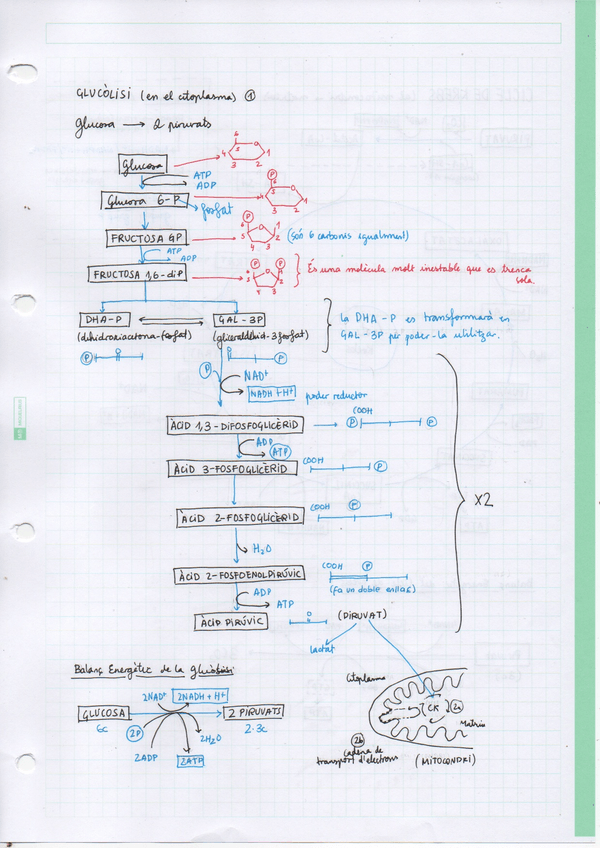 GLUCÒLISI (en el citoplasma) ①
Glucosa → 2 piruvats
Glucosa
6
5
O
4
1
3
2
ATP
ADP
Glucosa 6-P
fosfat
P
6
5
O
4
1
3
2
FRUCTOSA 6P
P
6
O
1
5
2
4
3
(són 6 carbonis igualment)
ATP
ADP
FRUCTOSA 1,6-diP
P
P
6
O
5
2
4
3
És una molècula molt inestable que es trenca
sola.
DHA-P
GAL-3P
(dihidroxiacetona-fosfat)
(gliceraldehid-3fosfat)
P
P
La DHA-P es transformarà en
GAL-3P per poder-la utilitzar.
P
NAD+
NADH + H+
poder reductor
ÀCID 1,3-DIFOSFOGLICÈRID
COOH
P
P
ADP
ATP
ÀCID 3-FOSFOGLICÈRID
COOH
P
X2
ÀCID 2-FOSFOGLICÈRID
COOH
P
H2O
ÀCID 2-FOSFOENOLPIRÚVIC
COOH
P
(fa un doble enllaç)
ADP
ATP
ÀCID PIRÚVIC
(PIRUVAT)
lactat
Balanç Energètic de la glucòlisi
2NAD+
2NADH + H+
GLUCOSA
2 PIRUVATS
6c
2P
2H2O
2·3c
2ADP
2ATP
Citoplasma
CK
2a
Matriu
2b
Cadena de
transport d'electrons
(MITOCONDRI)